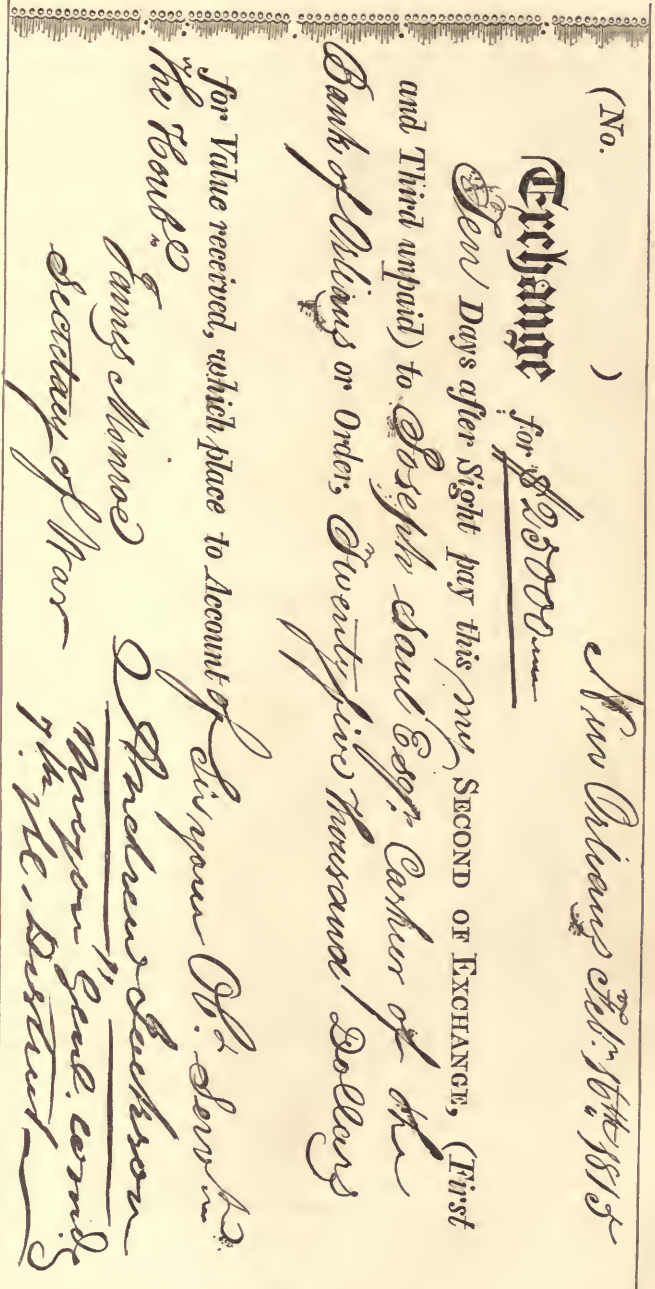 (No. ) New Orleans Feb. 16th 1815
Exchange for $25000
Ten Days after Sight pay this my SECOND OF EXCHANGE, (First
and Third unpaid) to Joseph Saul Esqr. Cashier of the
Bank of Orleans or Order, Twenty five thousand Dollars
for Value received, which place to Account of Sir, your Obt. Servt.
The Honbe. Andrew Jackson
James Monroe Major Genl. comdg
Secretary of War 7th Mc. District